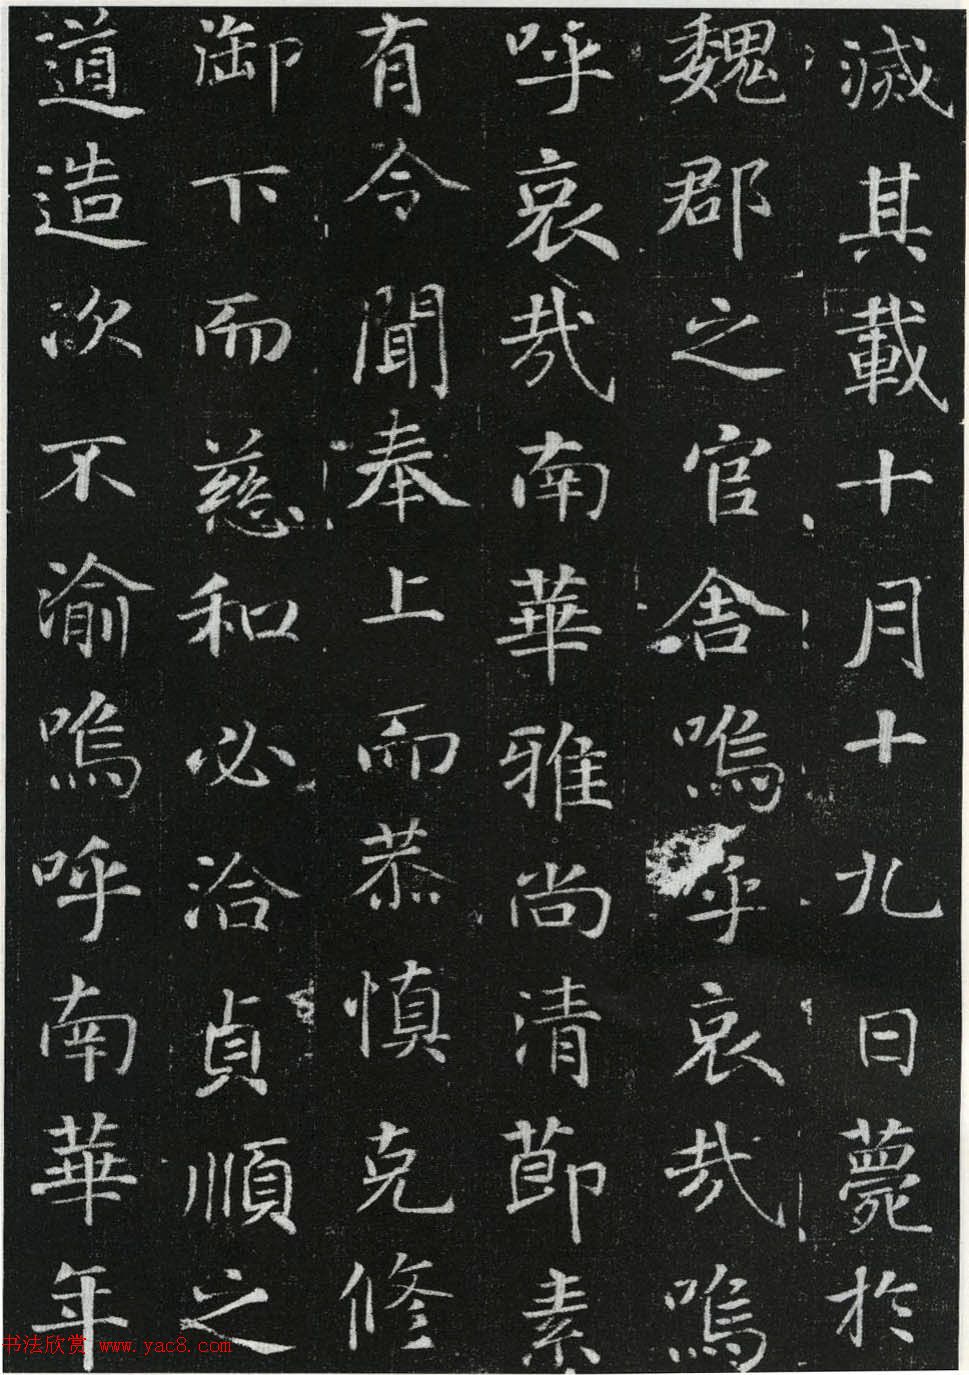 滅其載十月十九日薨於
魏郡之官舍嗚乎哀哉嗚
呼哀哉南華雅尚清節素
有令聞奉上而恭慎克修
御下而慈和必洽貞順之
道造次不渝嗚呼南華年
书法欣赏 www.yac8.com